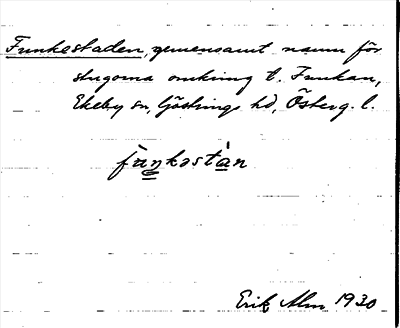 Funkestaden, gemensamt namn för
stugorna omkring t. Funkan,
Ekeby sn, Göstrings hd, Österg. l.
fùŋkəstàn
Erik Alm 1930